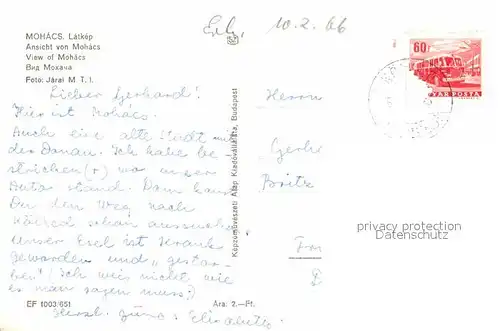 MOHÁCS. Látkép
Ansicht von Mohács
View of Mohács
Вид Мохача
Foto: Járai M. T. I.
Lieber Gerhard!
Hier ist Mohács.
Auch eine alte Stadt mit
der Donau. Ich habe be-
strichen (+) wo unser
Auto stand. Dann kannst
Du den Weg nach
schon
Unser Esel ist krank
geworden und "gestor-
ben"! (Ich weis nicht wie
es man sagen muss;)
Herzl. Elisabeth
EF 1003/651
Ára: 2.-Ft.
Képzőművészeti Alap Kiadóvállalata, Budapest
10.2.66
60f
MAGYAR POSTA
Herrn
Britz
privacy protection
Datenschutz